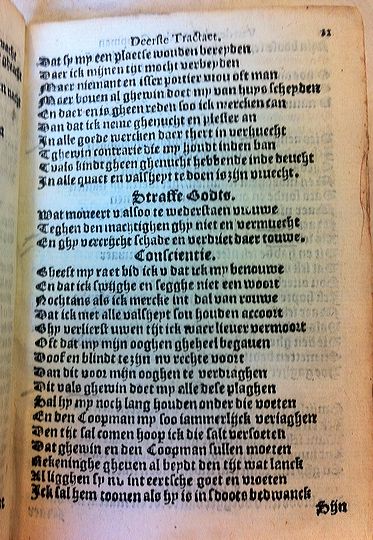 Deerste Tractaet. 21
Dat sy my een plaetse wouden bereyden
Daer ick mijnen tijt mocht verbeyden
Maer niemant en isser portier vrou oft man
Maer boven al ghewin doet my van huys scheyden
En daer en is gheen reden soo ick mercken can
Dan dat ick neme ghenucht en plesier an
In alle goede wercken daer thert in verhuecht
Tghewin contrarie die my houdt inden ban
Tvals kindt gheen ghenucht hebbende inde deucht
In alle quaet en valsheyt te doen is zijn vruecht.
Straffe Godts.
Wat moveert v alsoo te wederstaen vrouwe
Teghen den machtighen ghy niet en vermuecht
En ghy vercrijcht schade en verdriet daer touwe.
Conscientie.
Gheeft my raet bid ick v dat ick my benouwe
En dat ick swijghe en segghe niet een woort
Nochtans als ick mercke int dal van rouwe
Dat ick met alle valsheyt sou houden accoort
Ghy verlierst uwen tijt ick waer liever vermoort
Oft dat my mijn ooghen gheheel begaven
Doof en blindt te zijn nv rechte voort
Dan dit voor mijn ooghen te verdraghen
Dit vals ghewin doet my alle dese plaghen
Sal hy my noch lang houden onder die voeten
En den Coopman my soo iammerlijck veriaghen
Den tijt sal comen hoop ick die salt versoeten
Dat ghewin en den Coopman sullen moeten
Rekeninghe gheven al beydt den tijt wat lanck
Al ligghen sy nv int eertsche goet en vroeten
Ick sal hem toonen als hy is in sdoots bedwanck
Sijn